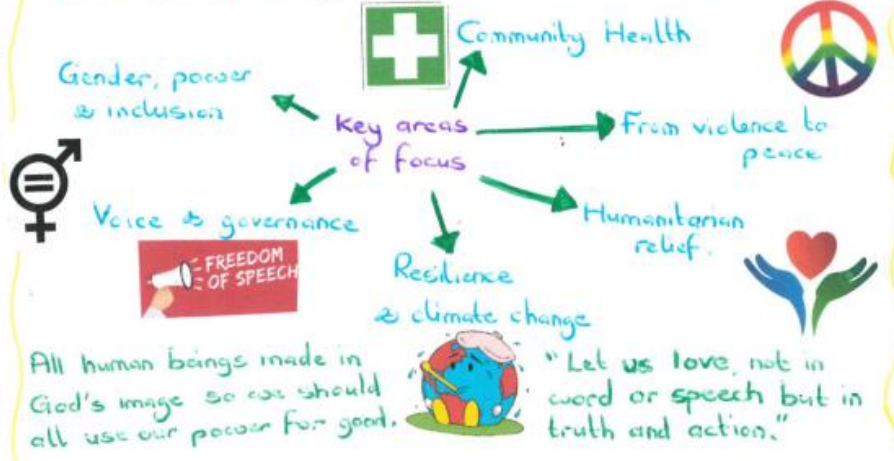 Community Health
Gender, power
& inclusion
Key areas
of focus
From violence to
peace
Voice & governance
Humanitarian
relief.
FREEDOM
OF SPEECH
Resilience
& climate change
All human beings made in
God's image so we should
all use our power for good.
"Let us love, not in
word or speech but in
truth and action."